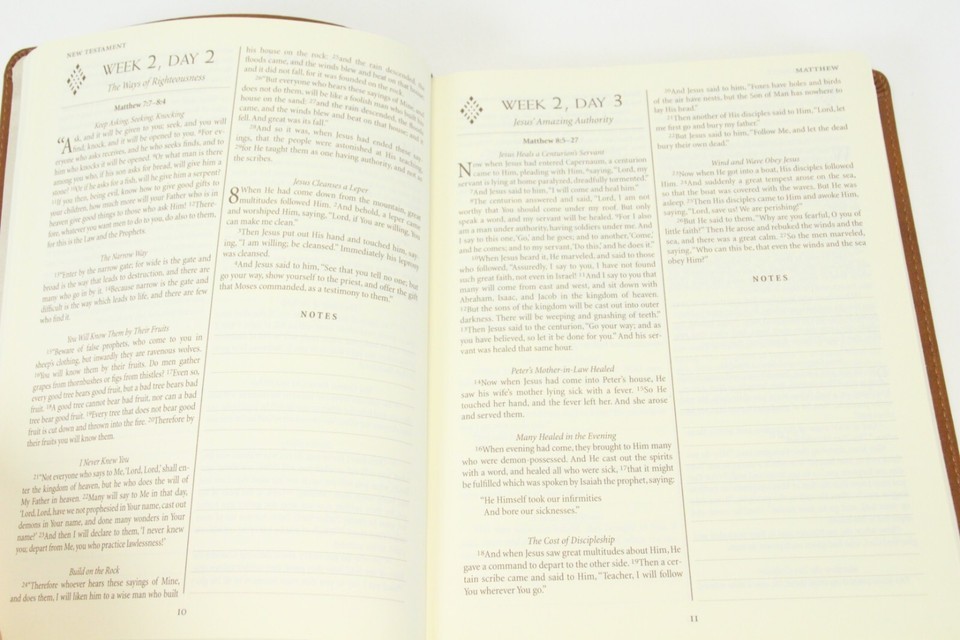 NEW TESTAMENT
WEEK 2, DAY 2
The Ways of Righteousness
Matthew 7:7–8:4
Keep Asking, Seeking, Knocking
“Ask, and it will be given to you; seek, and you will
find; knock, and it will be opened to you. 8For ev-
eryone who asks receives, and he who seeks finds, and to
him who knocks it will be opened. 9Or what man is there
among you who, if his son asks for bread, will give him a
stone? 10Or if he asks for a fish, will he give him a serpent?
11If you then, being evil, know how to give good gifts to
your children, how much more will your Father who is in
heaven give good things to those who ask Him! 12There-
fore, whatever you want men to do to you, do also to them,
for this is the Law and the Prophets.
The Narrow Way
13“Enter by the narrow gate; for wide is the gate and
broad is the way that leads to destruction, and there are
many who go in by it. 14Because narrow is the gate and
difficult is the way which leads to life, and there are few
who find it.
You Will Know Them by Their Fruits
15“Beware of false prophets, who come to you in
sheep’s clothing, but inwardly they are ravenous wolves.
16You will know them by their fruits. Do men gather
grapes from thornbushes or figs from thistles? 17Even so,
every good tree bears good fruit, but a bad tree bears bad
fruit. 18A good tree cannot bear bad fruit, nor can a bad
tree bear good fruit. 19Every tree that does not bear good
fruit is cut down and thrown into the fire. 20Therefore by
their fruits you will know them.
I Never Knew You
21“Not everyone who says to Me, ‘Lord, Lord,’ shall en-
ter the kingdom of heaven, but he who does the will of
My Father in heaven. 22Many will say to Me in that day,
‘Lord, Lord, have we not prophesied in Your name, cast out
demons in Your name, and done many wonders in Your
name?’ 23And then I will declare to them, ‘I never knew
you; depart from Me, you who practice lawlessness!’
Build on the Rock
24“Therefore whoever hears these sayings of Mine,
and does them, I will liken him to a wise man who built
his house on the rock: 25and the rain descended, the
floods came, and the winds blew and beat on that house;
and it did not fall, for it was founded on the rock.
26“But everyone who hears these sayings of Mine, and
does not do them, will be like a foolish man who built his
house on the sand: 27and the rain descended, the floods
came, and the winds blew and beat on that house; and it
fell. And great was its fall.”
28And so it was, when Jesus had ended these say-
ings, that the people were astonished at His teaching,
29for He taught them as one having authority, and not as
the scribes.
Jesus Cleanses a Leper
8 When He had come down from the mountain, great
multitudes followed Him. 2And behold, a leper came
and worshiped Him, saying, “Lord, if You are willing, You
can make me clean.”
3Then Jesus put out His hand and touched him, say-
ing, “I am willing; be cleansed.” Immediately his leprosy
was cleansed.
4And Jesus said to him, “See that you tell no one; but
go your way, show yourself to the priest, and offer the gift
that Moses commanded, as a testimony to them.”
NOTES
10
MATTHEW
WEEK 2, DAY 3
Jesus’ Amazing Authority
Matthew 8:5–27
Jesus Heals a Centurion’s Servant
Now when Jesus had entered Capernaum, a centurion
came to Him, pleading with Him, 6saying, “Lord, my
servant is lying at home paralyzed, dreadfully tormented.”
7And Jesus said to him, “I will come and heal him.”
8The centurion answered and said, “Lord, I am not
worthy that You should come under my roof. But only
speak a word, and my servant will be healed. 9For I also
am a man under authority, having soldiers under me. And
I say to this one, ‘Go,’ and he goes; and to another, ‘Come,’
and he comes; and to my servant, ‘Do this,’ and he does it.”
10When Jesus heard it, He marveled, and said to those
who followed, “Assuredly, I say to you, I have not found
such great faith, not even in Israel! 11And I say to you that
many will come from east and west, and sit down with
Abraham, Isaac, and Jacob in the kingdom of heaven.
12But the sons of the kingdom will be cast out into outer
darkness. There will be weeping and gnashing of teeth.”
13Then Jesus said to the centurion, “Go your way; and as
you have believed, so let it be done for you.” And his ser-
vant was healed that same hour.
Peter’s Mother-in-Law Healed
14Now when Jesus had come into Peter’s house, He
saw his wife’s mother lying sick with a fever. 15So He
touched her hand, and the fever left her. And she arose
and served them.
Many Healed in the Evening
16When evening had come, they brought to Him many
who were demon-possessed. And He cast out the spirits
with a word, and healed all who were sick, 17that it might
be fulfilled which was spoken by Isaiah the prophet, saying:
“He Himself took our infirmities
And bore our sicknesses.”
The Cost of Discipleship
18And when Jesus saw great multitudes about Him, He
gave a command to depart to the other side. 19Then a cer-
tain scribe came and said to Him, “Teacher, I will follow
You wherever You go.”
20And Jesus said to him, “Foxes have holes and birds
of the air have nests, but the Son of Man has nowhere to
lay His head.”
21Then another of His disciples said to Him, “Lord, let
me first go and bury my father.”
22But Jesus said to him, “Follow Me, and let the dead
bury their own dead.”
Wind and Wave Obey Jesus
23Now when He got into a boat, His disciples followed
Him. 24And suddenly a great tempest arose on the sea,
so that the boat was covered with the waves. But He was
asleep. 25Then His disciples came to Him and awoke Him,
saying, “Lord, save us! We are perishing!”
26But He said to them, “Why are you fearful, O you of
little faith?” Then He arose and rebuked the winds and the
sea, and there was a great calm. 27So the men marveled,
saying, “Who can this be, that even the winds and the sea
obey Him?”
NOTES
11